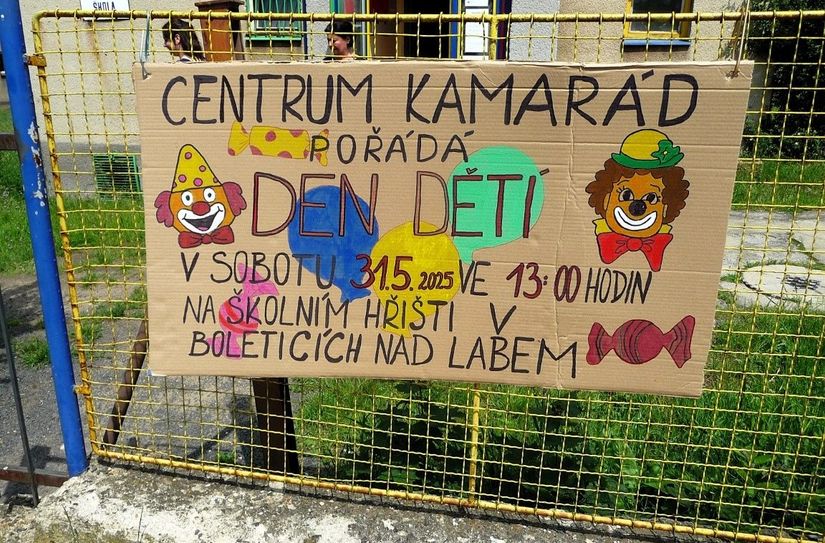 ŠKOLA
CENTRUM KAMARÁD
POŘÁDÁ
DEN DĚTÍ
V SOBOTU 31.5. 2025 VE 13:00 HODIN
NA ŠKOLNÍM HŘIŠTI V
BOLETICÍCH NAD LABEM